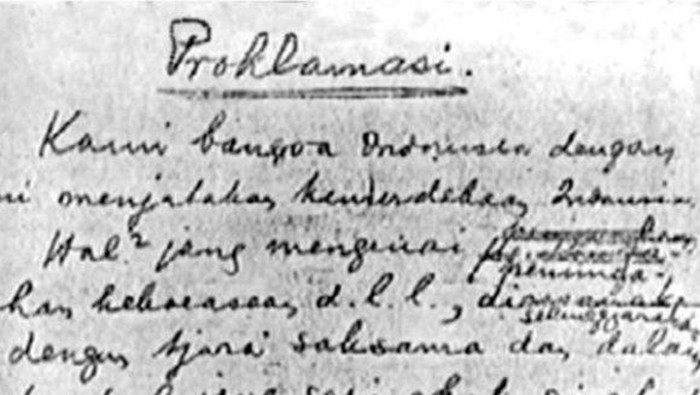 Proklamasi.
Kami bangsa Indonesia dengan
ni menjatakan kemerdekaan Indonesia.
Hal² jang mengenai
peminda-
han kekoeasaan d.l.l.,
diselenggarakan
dengan tjara saksama dan dalam